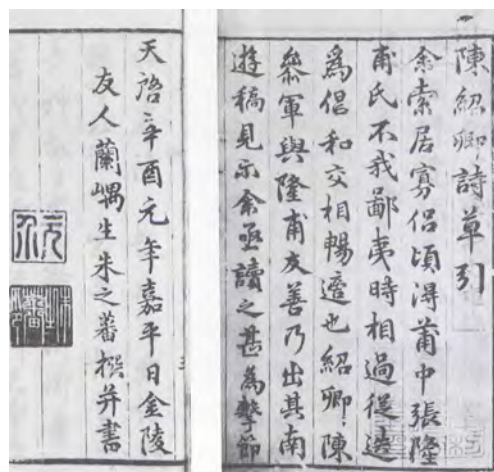 陳紹卿詩草引
余索居寡侣頃得莆中張隆
甫氏不我鄙夷時相過從迭
為倡和交相暢適也紹卿陳
叅軍與隆甫友善乃出其南
遊稿見示余亟讀之甚為擊節
天啓辛酉元年嘉平日金陵
友人蘭嵎生朱之蕃撰并書